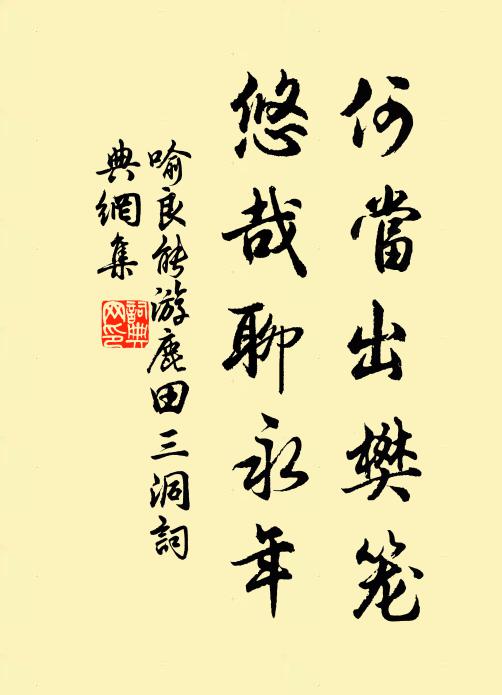 何當出樊笼
悠哉聊永年
喻良能游鹿田三洞詞
典網集
詞典
网印